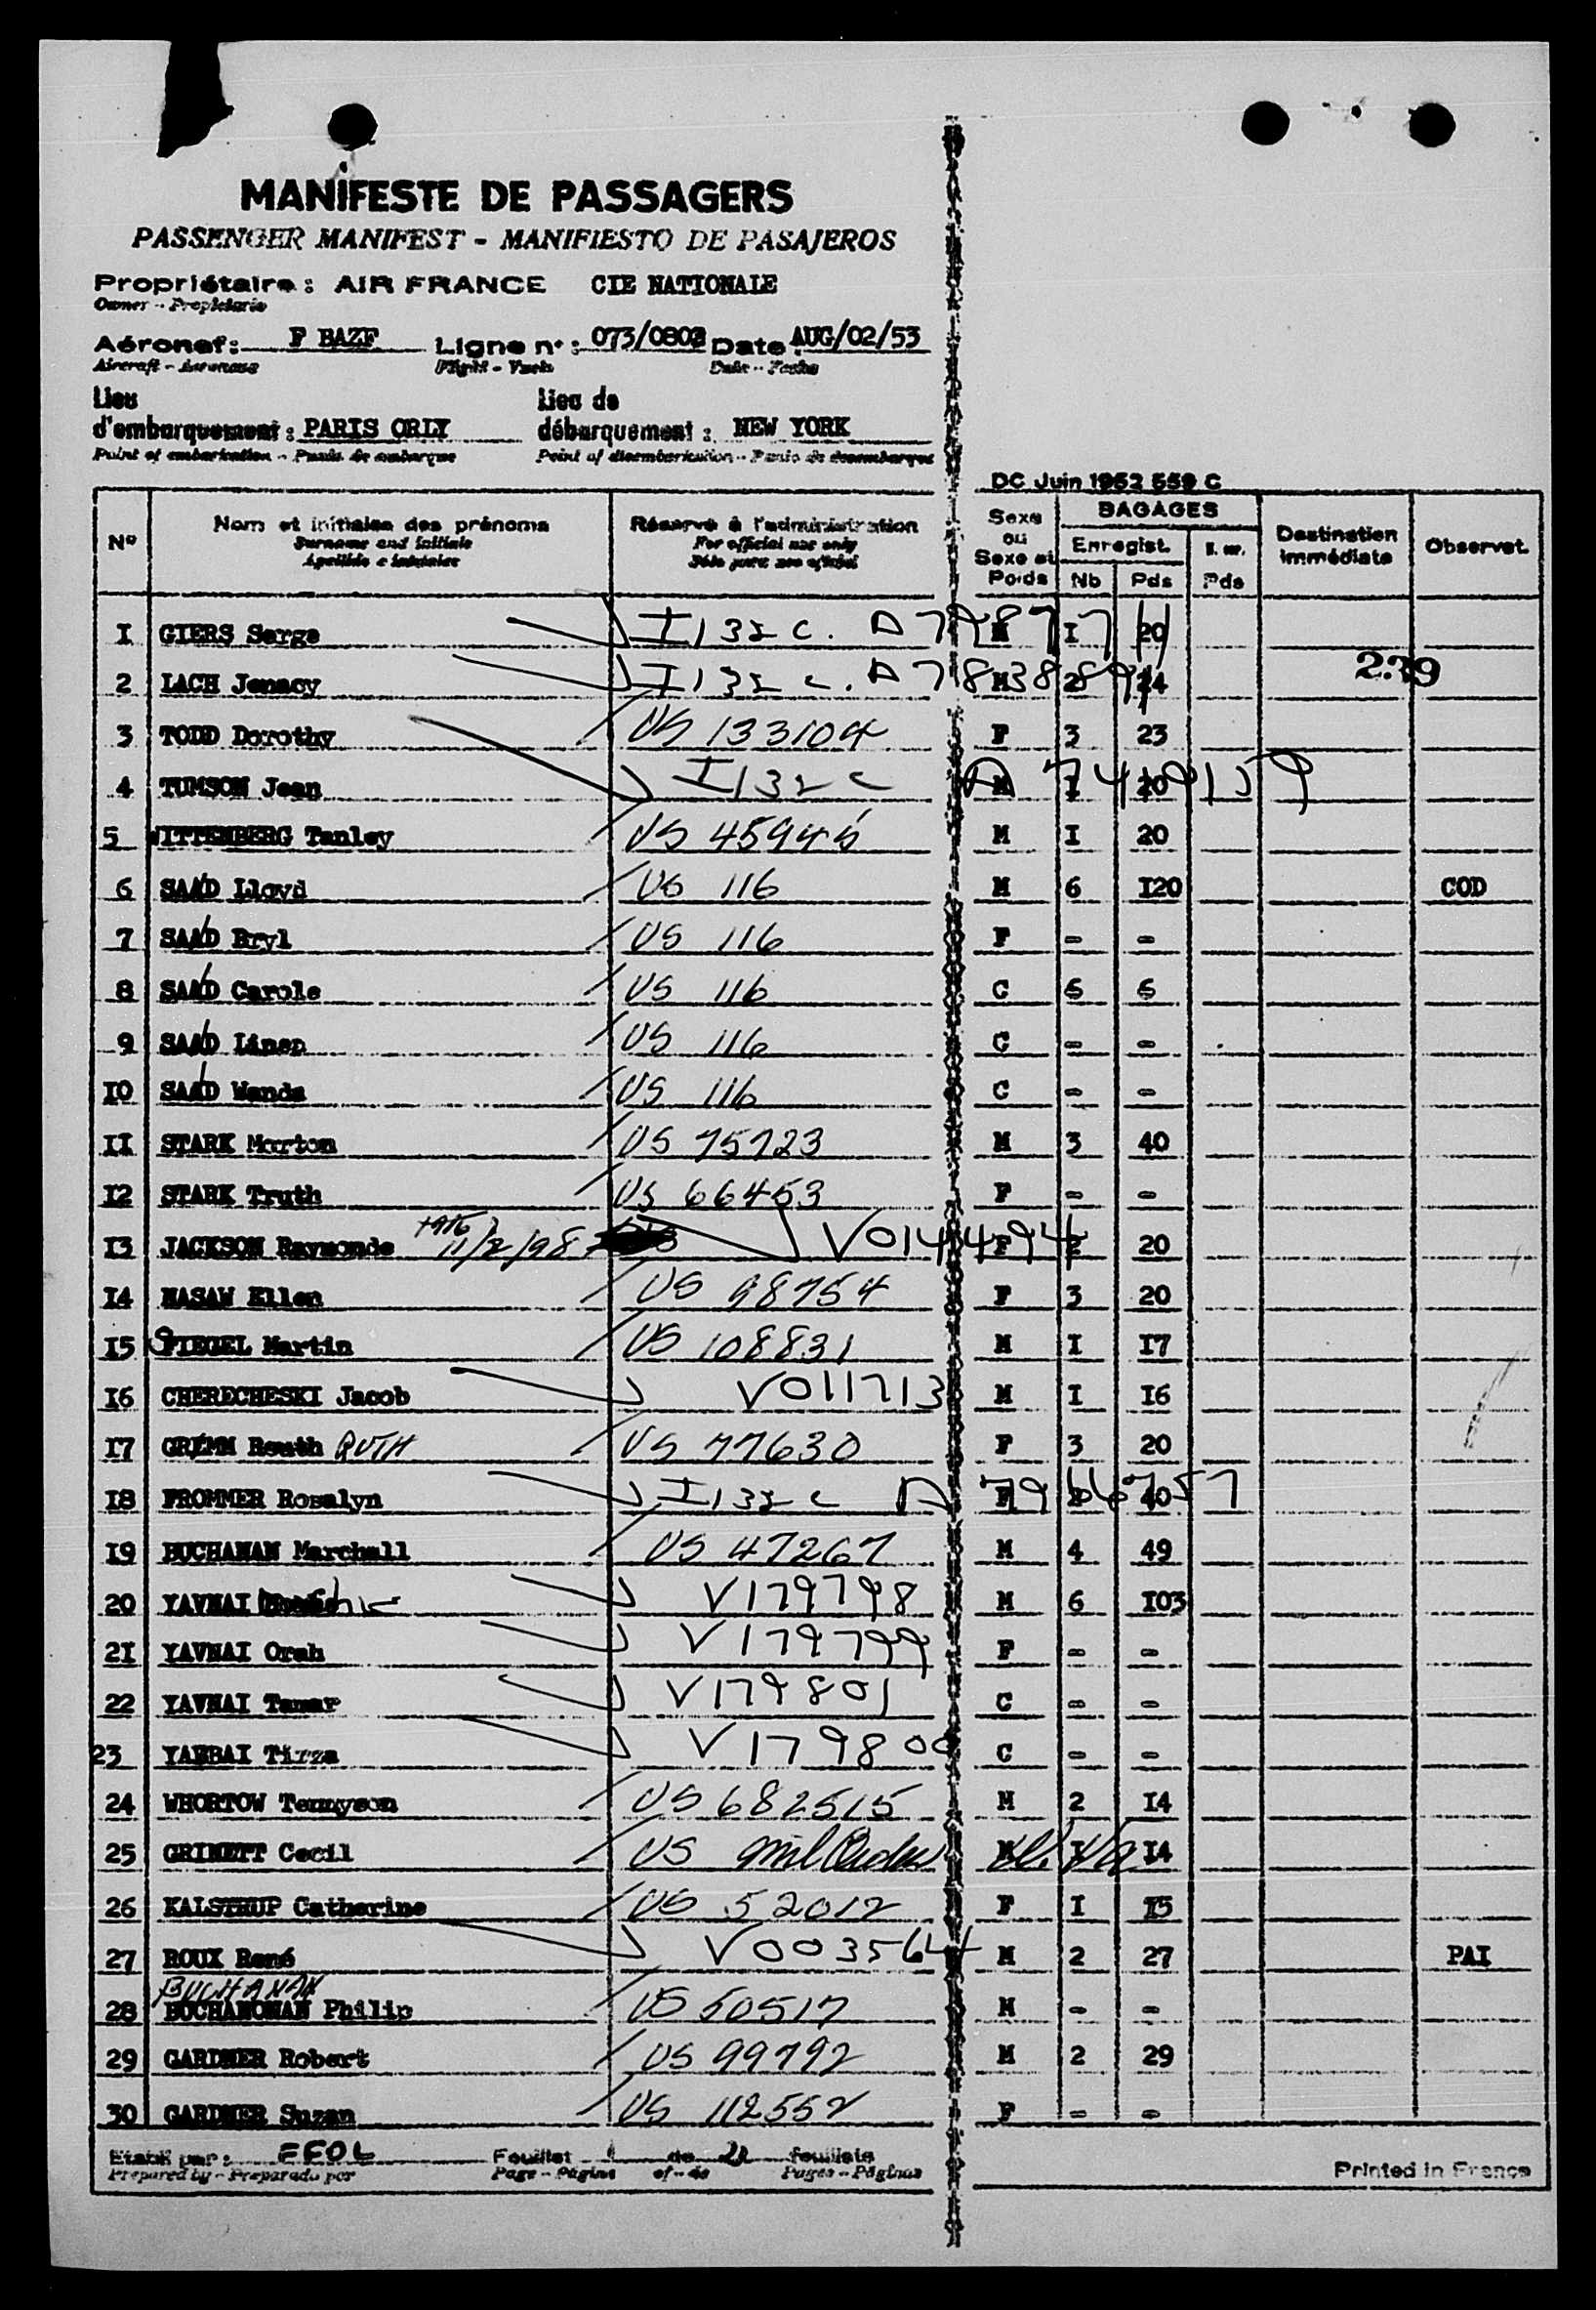 MANIFESTE DE PASSAGERS
PASSENGER MANIFEST - MANIFIESTO DE PASAJEROS
Propriétaire : AIR FRANCE CIE NATIONALE
Owner - Propietario
Aéronef : F BAZF Ligne n° : 073/0802 Date : AUG/02/53
Aircraft - Flight - Date - Fecha
Lieu d'embarquement : PARIS ORLY Lieu de débarquement : NEW YORK
Point of embarkation - Punto de embarque Point of disembarkation - Punto de desembarque
DC Juin 1952 559 C
N° Nom et initiales des prénoms Réservé à l'administration Sexe ou Sexe et Poids BAGAGES Enregist. Nb Pds Pds Destination immédiate Observat.
Surname and initials For official use only
239
I GIERS Serge I 132 C. A 7987717 M I 20
2 LACH Jenacy I 132 C. A M 2 24
3 TODD Dorothy US 133104 F 3 23
4 TUMSON Jean I 132 C A M I 20
5 WITTENBERG Tanley US M I 20
6 SAAD Lloyd US 116 M 6 I20 COD
7 SAAD Bryl US 116 F - -
8 SAAD Carole US 116 C 6 6
9 SAAD US 116 C - -
IO SAAD Wanda US 116 C - -
II STARK Morton US 75723 M 3 40
I2 STARK Truth US 66453 F - -
I3 JACKSON Raymonde V0144494 F 2 20
I4 NASAW Ellen US 98754 F 3 20
I5 SPIEGEL Martin US 108831 M I I7
I6 CHERECHESKI Jacob V011713 M I I6
I7 GRIMM Reuth RUTH US 77630 F 3 20
I8 FROMMER Rosalyn I 132 C A F 40
I9 BUCHANAN Marchall US 47267 M 4 49
20 YAVNAI V179798 M 6 I03
2I YAVNAI Orah V179799 F - -
22 YAVNAI Tamar V179801 C - -
23 Tirza V179800 C - -
24 WHORTOW Tennyson US 682515 M 2 I4
25 GRIMETT Cecil US Mil Orders M I I4
26 KALSTRUP Catherine US 52012 F I I5
27 ROUX René V003564 M 2 27 PAI
BUCHANAN
28 BUCHANOMAN Philip US 50517 M - -
29 GARDNER Robert US 99792 M 2 29
30 GARDNER Suzan US 112552 F - -
Etabli par : Feuillet 1 de 2 feuillets
Prepared by - Preparado por Page - Página of - de Pages - Páginas
Printed in France